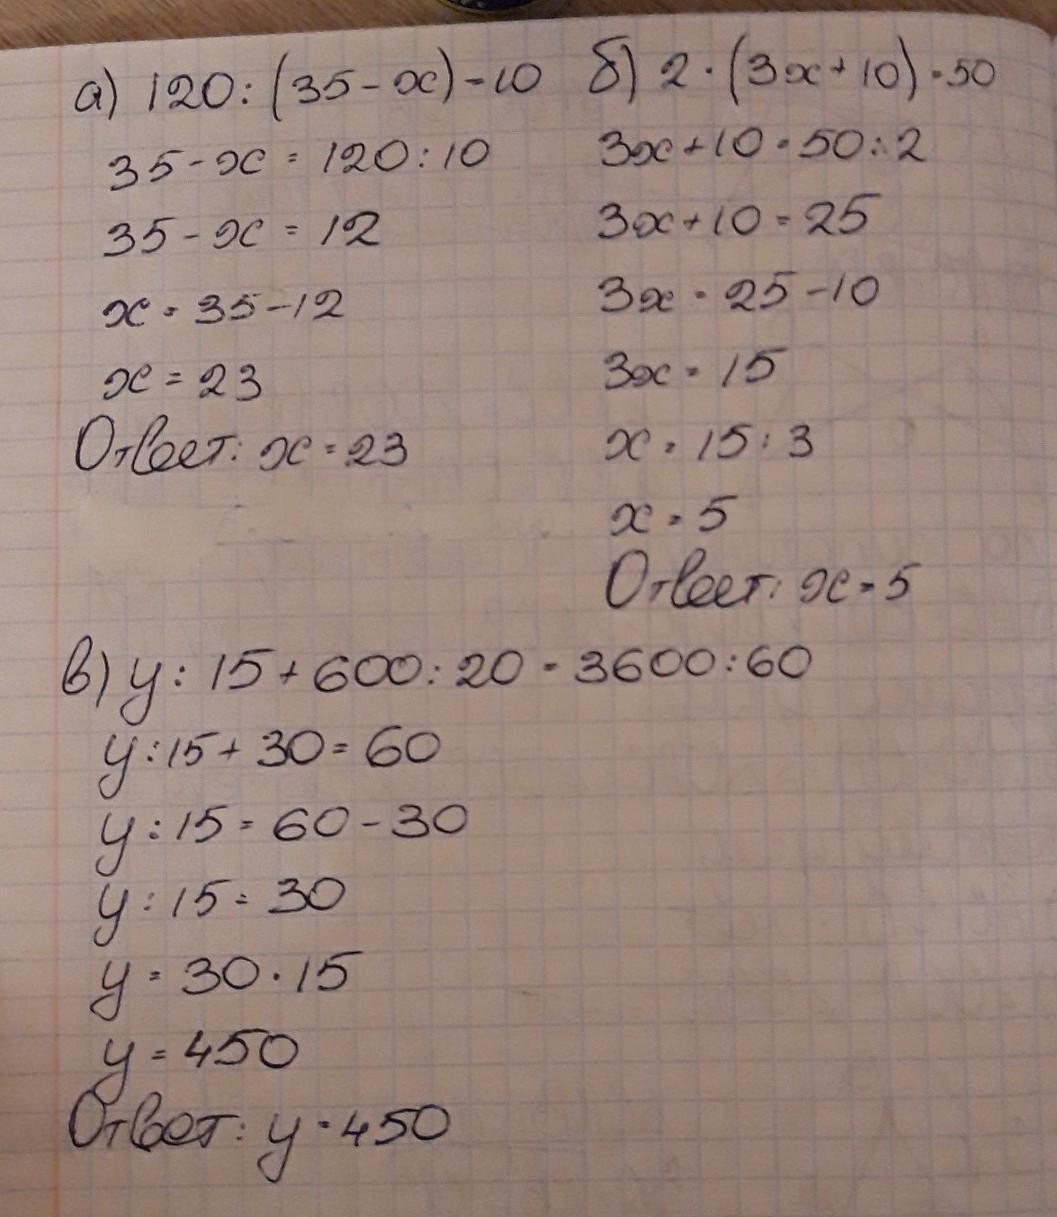 а) 120 : (35 - x) = 10
35 - x = 120 : 10
35 - x = 12
x = 35 - 12
x = 23
Ответ: x = 23
б) 2 · (3x + 10) = 50
3x + 10 = 50 : 2
3x + 10 = 25
3x = 25 - 10
3x = 15
x = 15 : 3
x = 5
Ответ: x = 5
в) y : 15 + 600 : 20 = 3600 : 60
y : 15 + 30 = 60
y : 15 = 60 - 30
y : 15 = 30
y = 30 · 15
y = 450
Ответ: y = 450